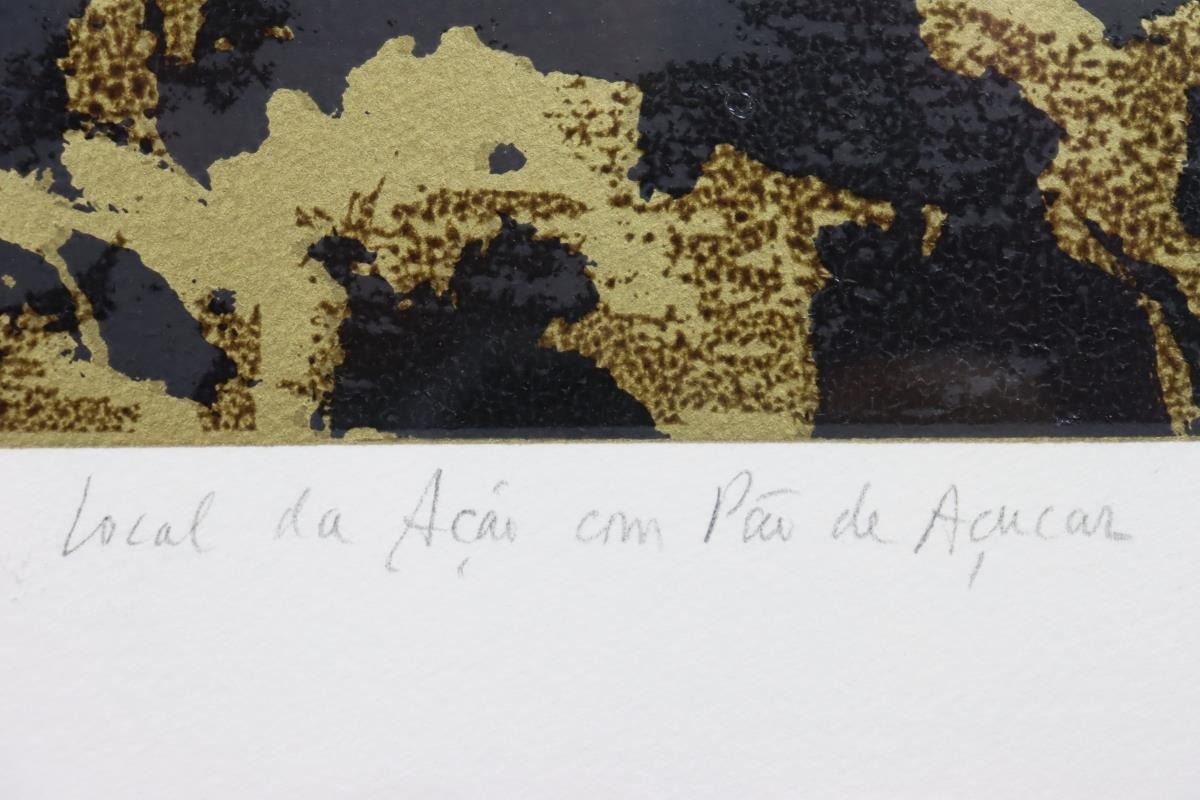 Local da Ação com Pão de Açucar